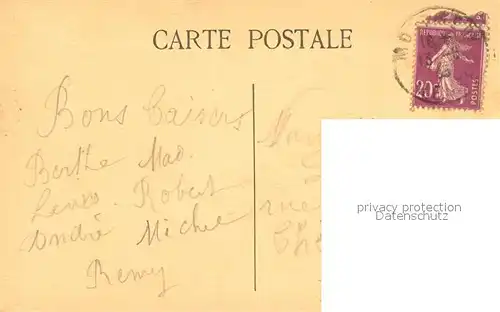 CARTE POSTALE
REPUBLIQUE FRANÇAISE
20c
POSTES
Bons Baisers
Berthe Mad.
Robert
André Michel
Remy
rue
privacy protection
Datenschutz